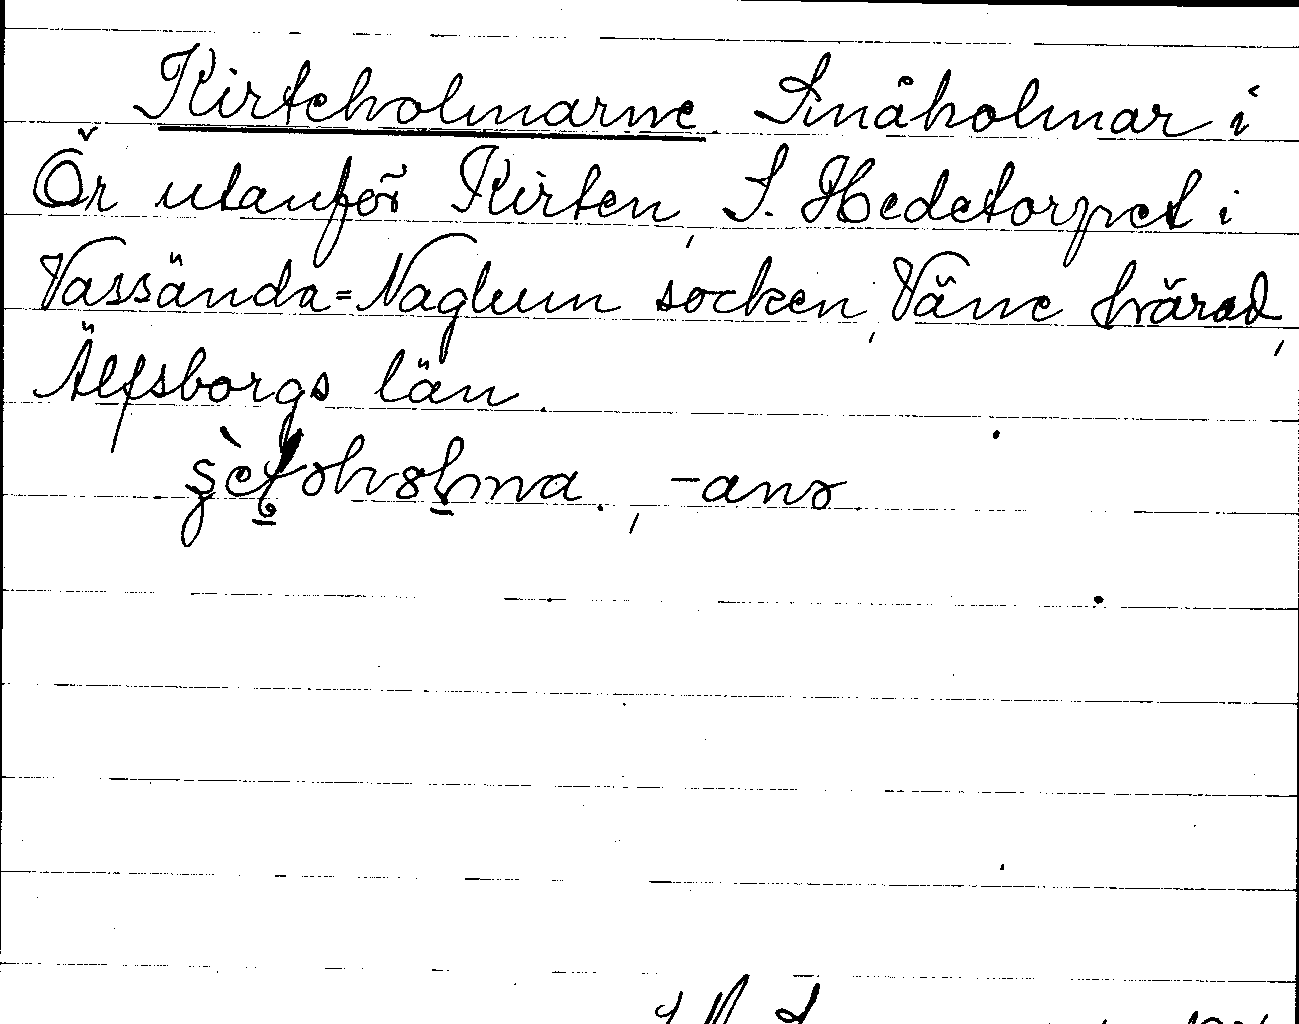 Kirteholmarne. Småholmar i
Ör utanför Kirten, S. Hedetorpet i
Vassända=Naglum socken, Väne härad,
Älfsborgs län.
-anə.